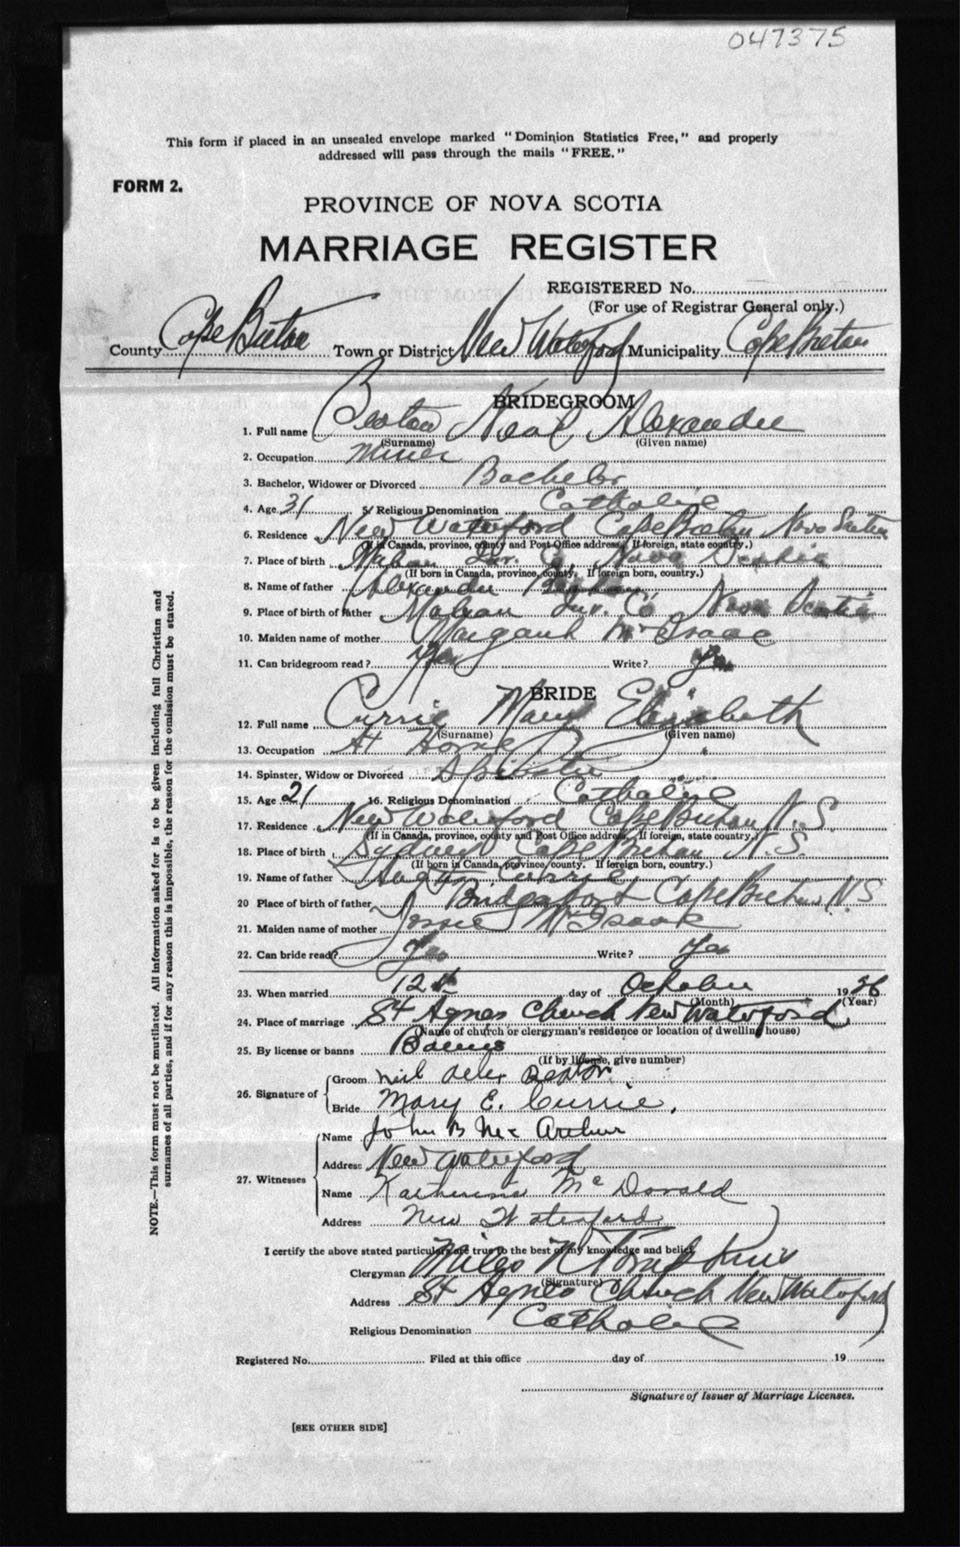 047375
This form if placed in an unsealed envelope marked "Dominion Statistics Free," and properly
addressed will pass through the mails "FREE."
FORM 2.
PROVINCE OF NOVA SCOTIA
MARRIAGE REGISTER
REGISTERED No.
(For use of Registrar General only.)
County Cape Breton Town or District New Waterford Municipality Cape Breton
BRIDEGROOM
1. Full name Beaton Neal Alexander
(Surname) (Given name)
2. Occupation Miner
3. Bachelor, Widower or Divorced Bachelor
4. Age 31 5. Religious Denomination Catholic
6. Residence New Waterford Cape Breton Nova Scotia
(If in Canada, province, county and Post Office address. If foreign, state country.)
7. Place of birth Mabou Inv. Co. Nova Scotia
(If born in Canada, province, county. If foreign born, country.)
8. Name of father Alexander Beaton
9. Place of birth of father Mabou Inv. Co Nova Scotia
10. Maiden name of mother Margaret McIsaac
11. Can bridegroom read? Yes Write? Yes
BRIDE
12. Full name Currie Mary Elizabeth
(Surname) (Given name)
13. Occupation At Home
14. Spinster, Widow or Divorced Spinster
15. Age 21 16. Religious Denomination Catholic
17. Residence New Waterford Cape Breton N.S.
(If in Canada, province, county and Post Office address. If foreign, state country.)
18. Place of birth Sydney Cape Breton N.S.
(If born in Canada, province/county. If foreign born, country.)
19. Name of father Currie
20 Place of birth of father Bridgeport Cape Breton N.S
21. Maiden name of mother McIsaac
22. Can bride read? Yes Write? Yes
23. When married 12th day of October 1936
(Month) (Year)
24. Place of marriage St Agnes Church New Waterford
(Name of church or clergyman's residence or location of dwelling house)
25. By license or banns Banns
(If by license, give number)
26. Signature of Groom Neil Alex Beaton
Bride Mary E. Currie.
27. Witnesses Name John B McArthur
Address New Waterford
Name Katherine McDonald
Address New Waterford
I certify the above stated particulars are true to the best of my knowledge and belief.
Clergyman Miles N Tompkins
(Signature)
Address St Agnes Church New Waterford
Religious Denomination Catholic
Registered No. Filed at this office day of 19
Signature of Issuer of Marriage Licenses.
[SEE OTHER SIDE]
NOTE.—This form must not be mutilated. All information asked for is to be given including full Christian and
surnames of all parties, and if for any reason this is impossible, the reason for the omission must be stated.